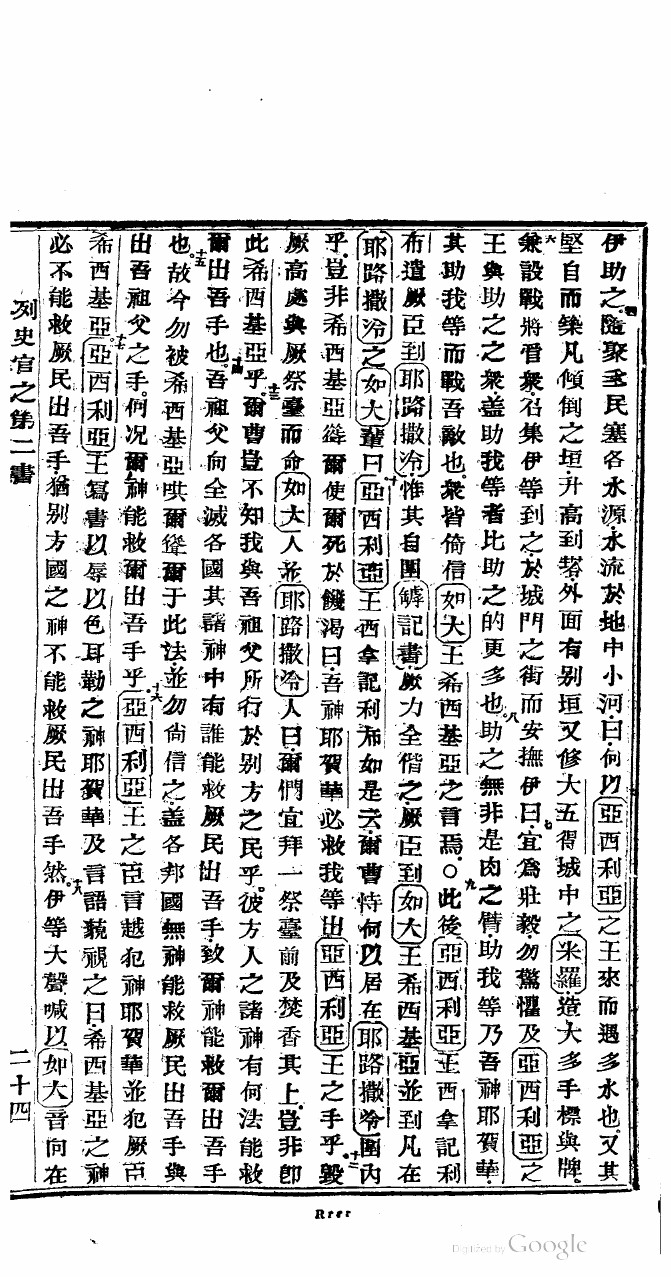 伊助之。四隨聚全民塞各水源水流於地中小河曰何以亞西利亞之王來而遇多水也。五又其
堅自而築凡傾倒之垣升高到塔外面有别垣又修大五得城中之米羅造大多手標與牌。
六兼設戰將督衆召集伊等到之於城門之街而安撫伊曰。七宜爲壯毅勿驚懼及亞西利亞之
王與助之之衆蓋助我等者比助之的更多也。八助之無非是肉之臂助我等乃吾神耶賀華。
其助我等而戰吾敵也衆皆倚信如大王希西基亞之言焉。○九此後亞西利亞王西拿記利
布遣厥臣到耶路撒冷惟其自圍罅記書厥力全偕之厥臣到如大王希西基亞並到凡在
耶路撒冷之如大輩曰。十亞西利亞王西拿記利布如是云爾曹恃何以居在耶路撒冷圍内
乎。十一豈非希西基亞聳爾使爾死於饑渴曰吾神耶賀華必救我等出亞西利亞王之手乎。十二毀
厥高處與厥祭臺而命如大人並耶路撒冷人曰爾們宜拜一祭臺前及焚香其上豈非卽
此希西基亞乎。十三爾曹豈不知我與吾祖父所行於别方之民乎。彼方人之諸神有何法能救
爾出吾手也。十四吾祖父向全滅各國其諸神中有誰能救厥民出吾手致爾神能救爾出吾手
也。十五故今勿被希西基亞哄爾聳爾于此法並勿尚信之蓋各邦國無神能救厥民出吾手與
出吾祖父之手。何况爾神能救爾出吾手乎。十六亞西利亞王之臣言越犯神耶賀華並犯厥臣
希西基亞。十七亞西利亞王寫書以辱以色耳勒之神耶賀華及言語藐視之曰希西基亞之神
必不能救厥民出吾手猶别方國之神不能救厥民出吾手然。十八伊等大聲喊以如大音向在
列史官之第二書
二十四
Rrrr
Digitized by Google